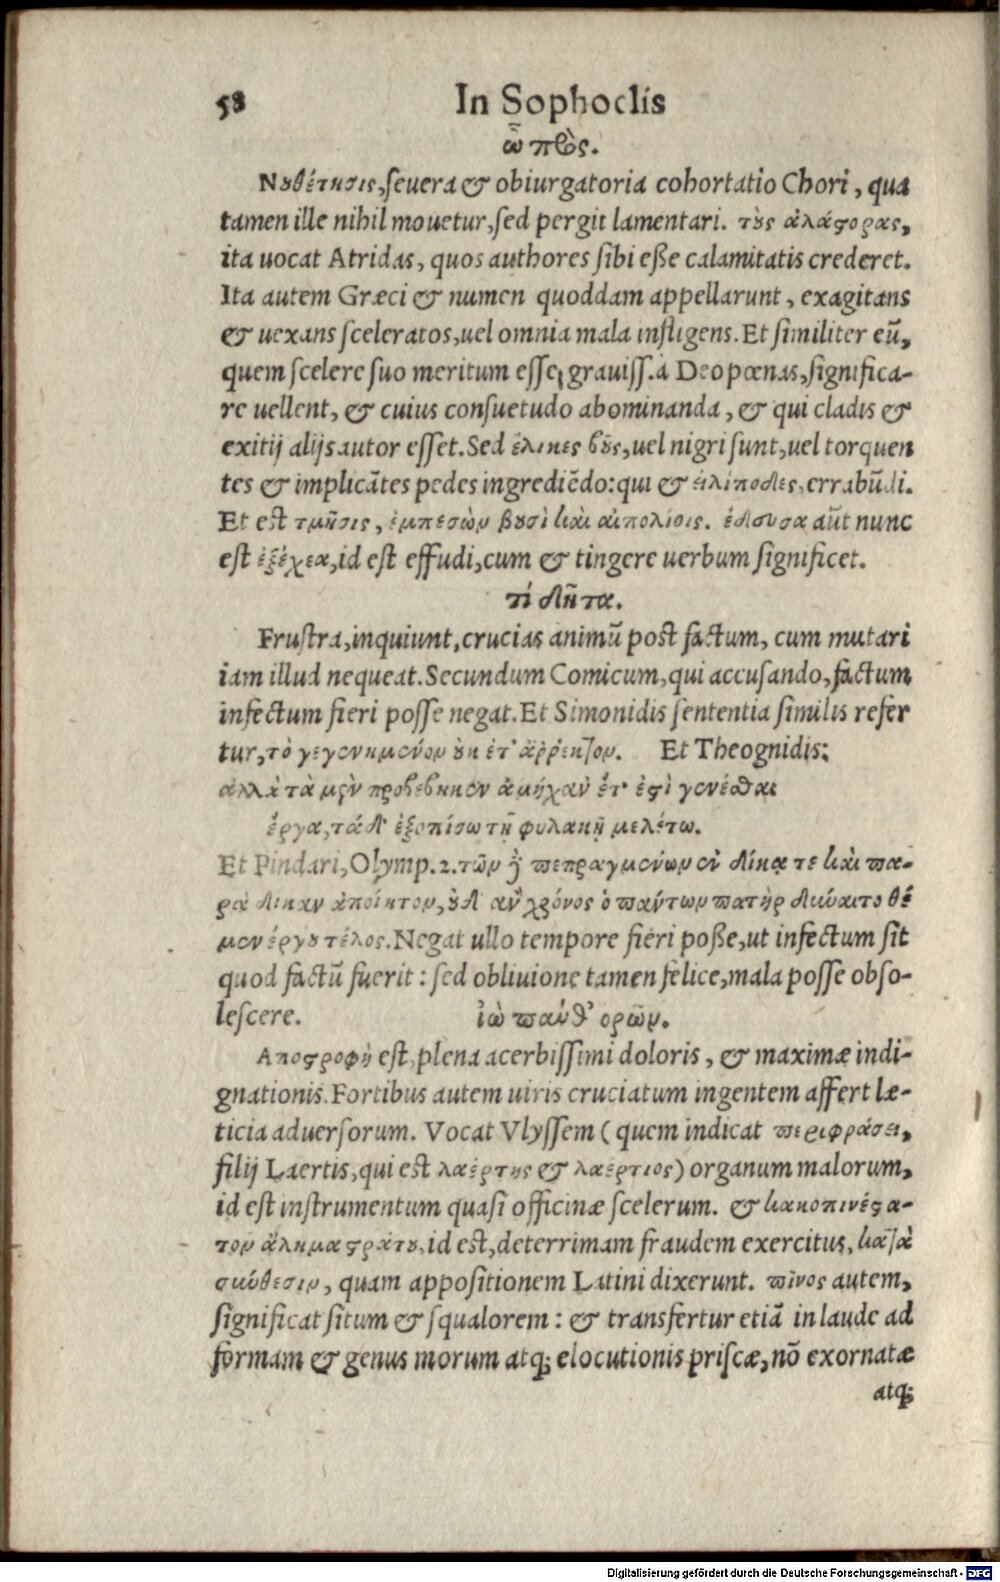 58 In Sophoclis
ὦ πρὸς.
Νουθέτησις, seuera & obiurgatoria cohortatio Chori, qua
tamen ille nihil mouetur, sed pergit lamentari. τοὺς ἀλάστορας,
ita uocat Atridas, quos authores sibi eße calamitatis crederet.
Ita autem Græci & numen quoddam appellarunt, exagitans
& uexans sceleratos, uel omnia mala infligens. Et similiter eū,
quem scelere suo meritum esse, grauiss. à Deo pœnas, significa-
re uellent, & cuius consuetudo abominanda, & qui cladis &
exitij alijs autor esset. Sed ἕλικες βοῦς, uel nigri sunt, uel torquen
tes & implicātes pedes ingrediēdo: qui & εἰλίποδες, errabūdi.
Et est τμῆσις, ἐμπεσὼν βουσὶ καὶ αἰπολίοις. ἔδευσα aūt nunc
est ἐξέχεα, id est effudi, cum & tingere uerbum significet.
τί δῆτα.
Frustra, inquiunt, crucias animū post factum, cum mutari
iam illud nequeat. Secundum Comicum, qui accusando, factum
infectum fieri posse negat. Et Simonidis sententia similis refer
tur, τὸ γεγενημένον οὐκ ἔτ' ἄῤῥεκτον. Et Theognidis:
ἀλλὰ τὰ μὲν προβέβηκεν ἀμήχανὀν ἔτ' ἐστὶ γενέσθαι
ἔργα, τά δ' ἐξοπίσω τῇ φυλακῇ μελέτω.
Et Pindari, Olymp. 2. τῶν δὲ πεπραγμένων ἐν δίκᾳ τε καὶ πα-
ρὰ δίκαν ἀποίητον, οὐδ' ἂν χρόνος ὁ πάντων πατὴρ δύναιτο θέ
μεν ἔργου τέλος. Negat ullo tempore fieri poße, ut infectum sit
quod factū fuerit: sed obliuione tamen felice, mala posse obso-
lescere. ἰὼ πάνθ' ὁρῶν.
Αποστροφὴ est, plena acerbissimi doloris, & maximæ indi-
gnationis. Fortibus autem uiris cruciatum ingentem affert læ-
ticia aduersorum. Vocat Vlyssem (quem indicat περιφράσει,
filij Laertis, qui est λαέρτης & λαέρτιος) organum malorum,
id est instrumentum quasi officinæ scelerum. & κακοπινέστα-
τον ἄλημα στρατοῦ, id est, deterrimam fraudem exercitus, κατὰ
σύνθεσιν, quam appositionem Latini dixerunt. πῖνος autem,
significat situm & squalorem: & transfertur etiā in laude ad
formam & genus morum atq; elocutionis priscæ, nō exornatæ
atq;
Digitalisierung gefördert durch die Deutsche Forschungsgemeinschaft - DFG